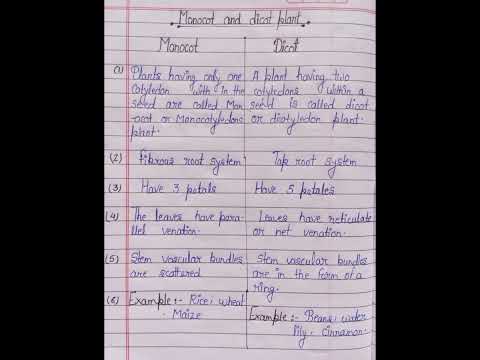 Monocot and dicot plant.
Monocot Dicot
(1) Plants having only one A plant having two
Cotyledon with in the cotyledons within a
seed are called Mon seed is called dicot
-ocot or Monocotyledons or dicotyledon plant.
plant.
(2) Fibrous root system Tap root system
(3) Have 3 petals Have 5 petales
(4) The leaves have para Leaves have reticulate
llel venation. or net venation.
(5) Stem vascular bundles Stem vascular bundles
are scattered are in the form of a
ring.
(6) Example :- Rice, wheat Example :- Beans, water
Maize lily, cinnamon.